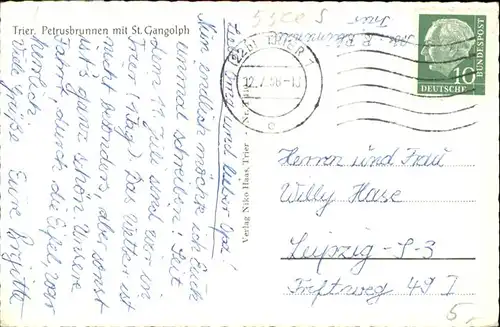 Trier, Petrusbrunnen mit St. Gangolph
Liebe Oma und lieber Opa!
Nun endlich möchte ich Euch
einmal schreiben! Seit
dem 11. Juli sind wir in
Trier! (1 Tag) Das Wetter ist
nicht besonders, aber sonst
ist's ganz schön. Unsere
Fahrt, durch die Eifel, war
herrlich.
Viele Grüße Eure Brigitte
Verlag Niko Haas, Trier
(22b) TRIER 1
12.7.58-13
c
DEUTSCHE
BUNDESPOST
10
Trier
Herren und Frau
Willy Hase
Leipzig-S-3
49 I
5